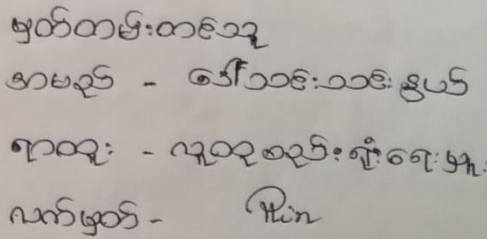 မှတ်တမ်းတင်သူ
အမည် - ဒေါ်သင်းသင်းနွယ်
ရာထူး - လူထုစည်းရုံးရေးမှူး
လက်မှတ် -